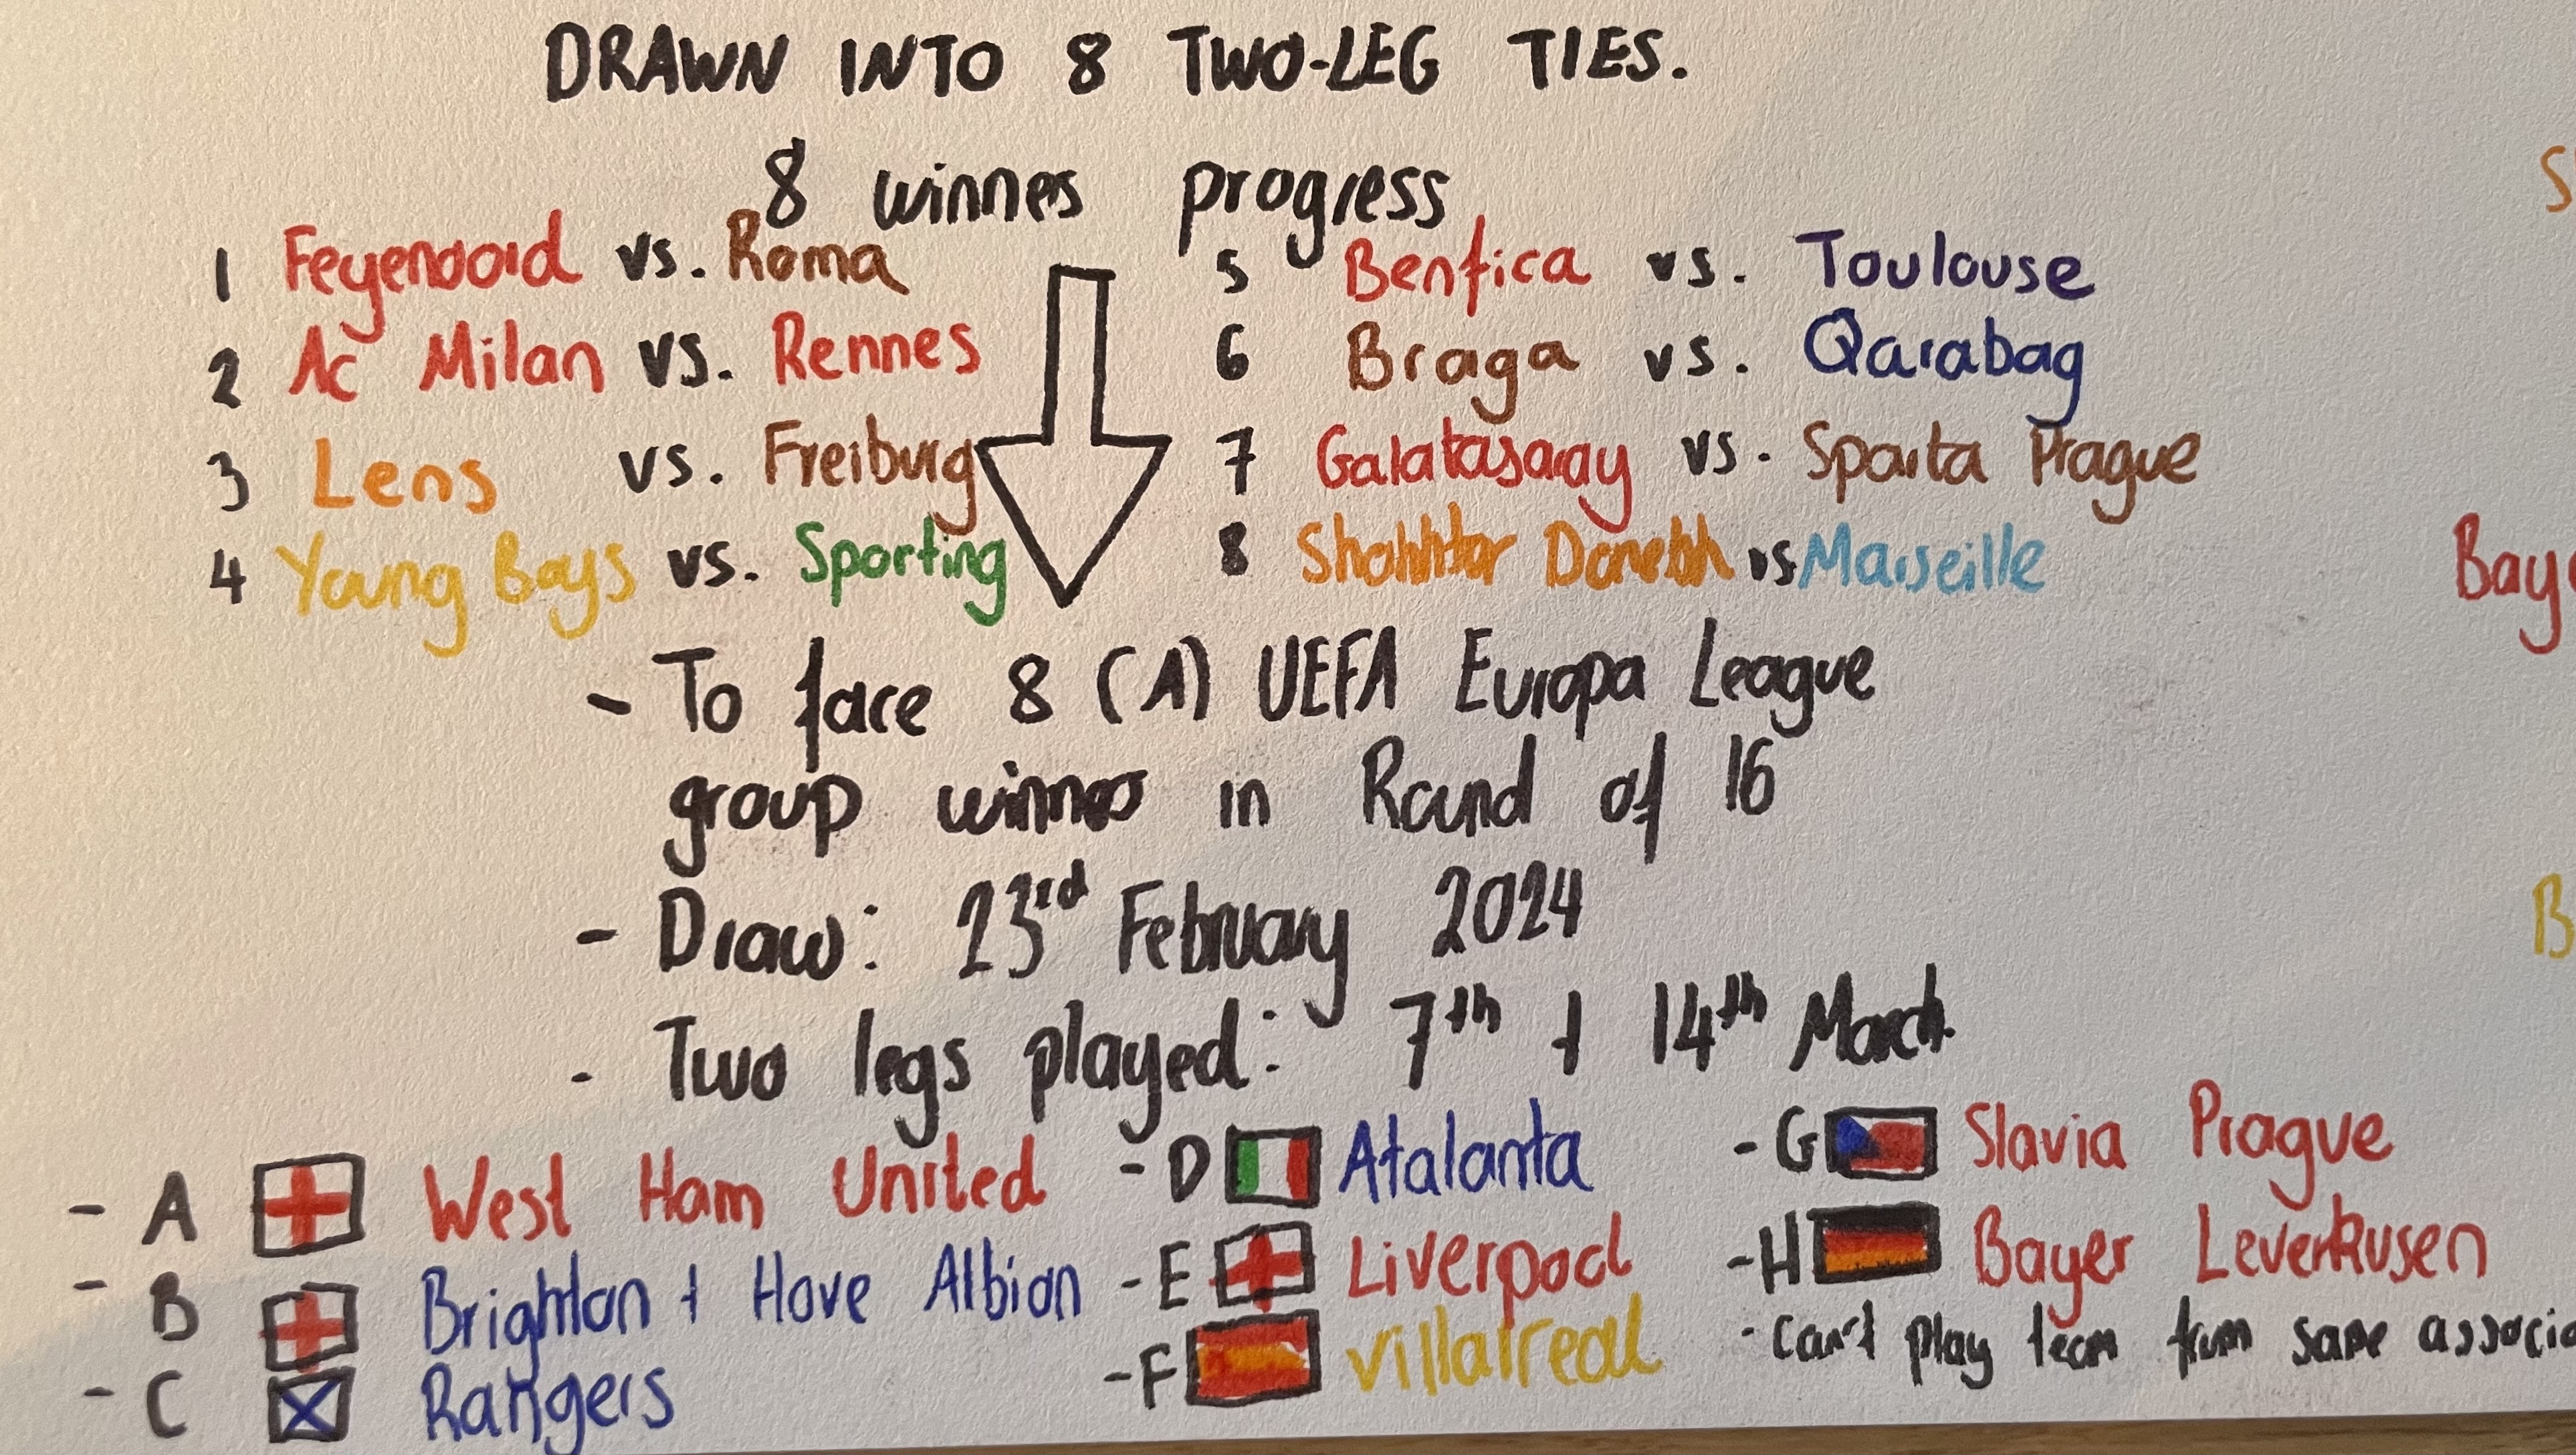 DRAWN INTO 8 TWO-LEG TIES.
8 winnes progress
1 Feyenoord vs. Roma
2 Ac Milan vs. Rennes
3 Lens vs. Freiburg
4 Young Boys vs. Sporting
5 Benfica vs. Toulouse
6 Braga vs. Qarabag
7 Galatasaray vs. Sparta Prague
8 Shahktar Donetsk vs Marseille
- To face 8 (A) UEFA Europa League
group winners in Round of 16
- Draw: 23rd February 2024
- Two legs played: 7th + 14th March.
- A West Ham United
- B Brighton + Hove Albion
- C Rangers
- D Atalanta
- E Liverpool
- F Villarreal
- G Slavia Prague
- H Bayer Leverkusen
- can't play team from same associa
S
Baye
B